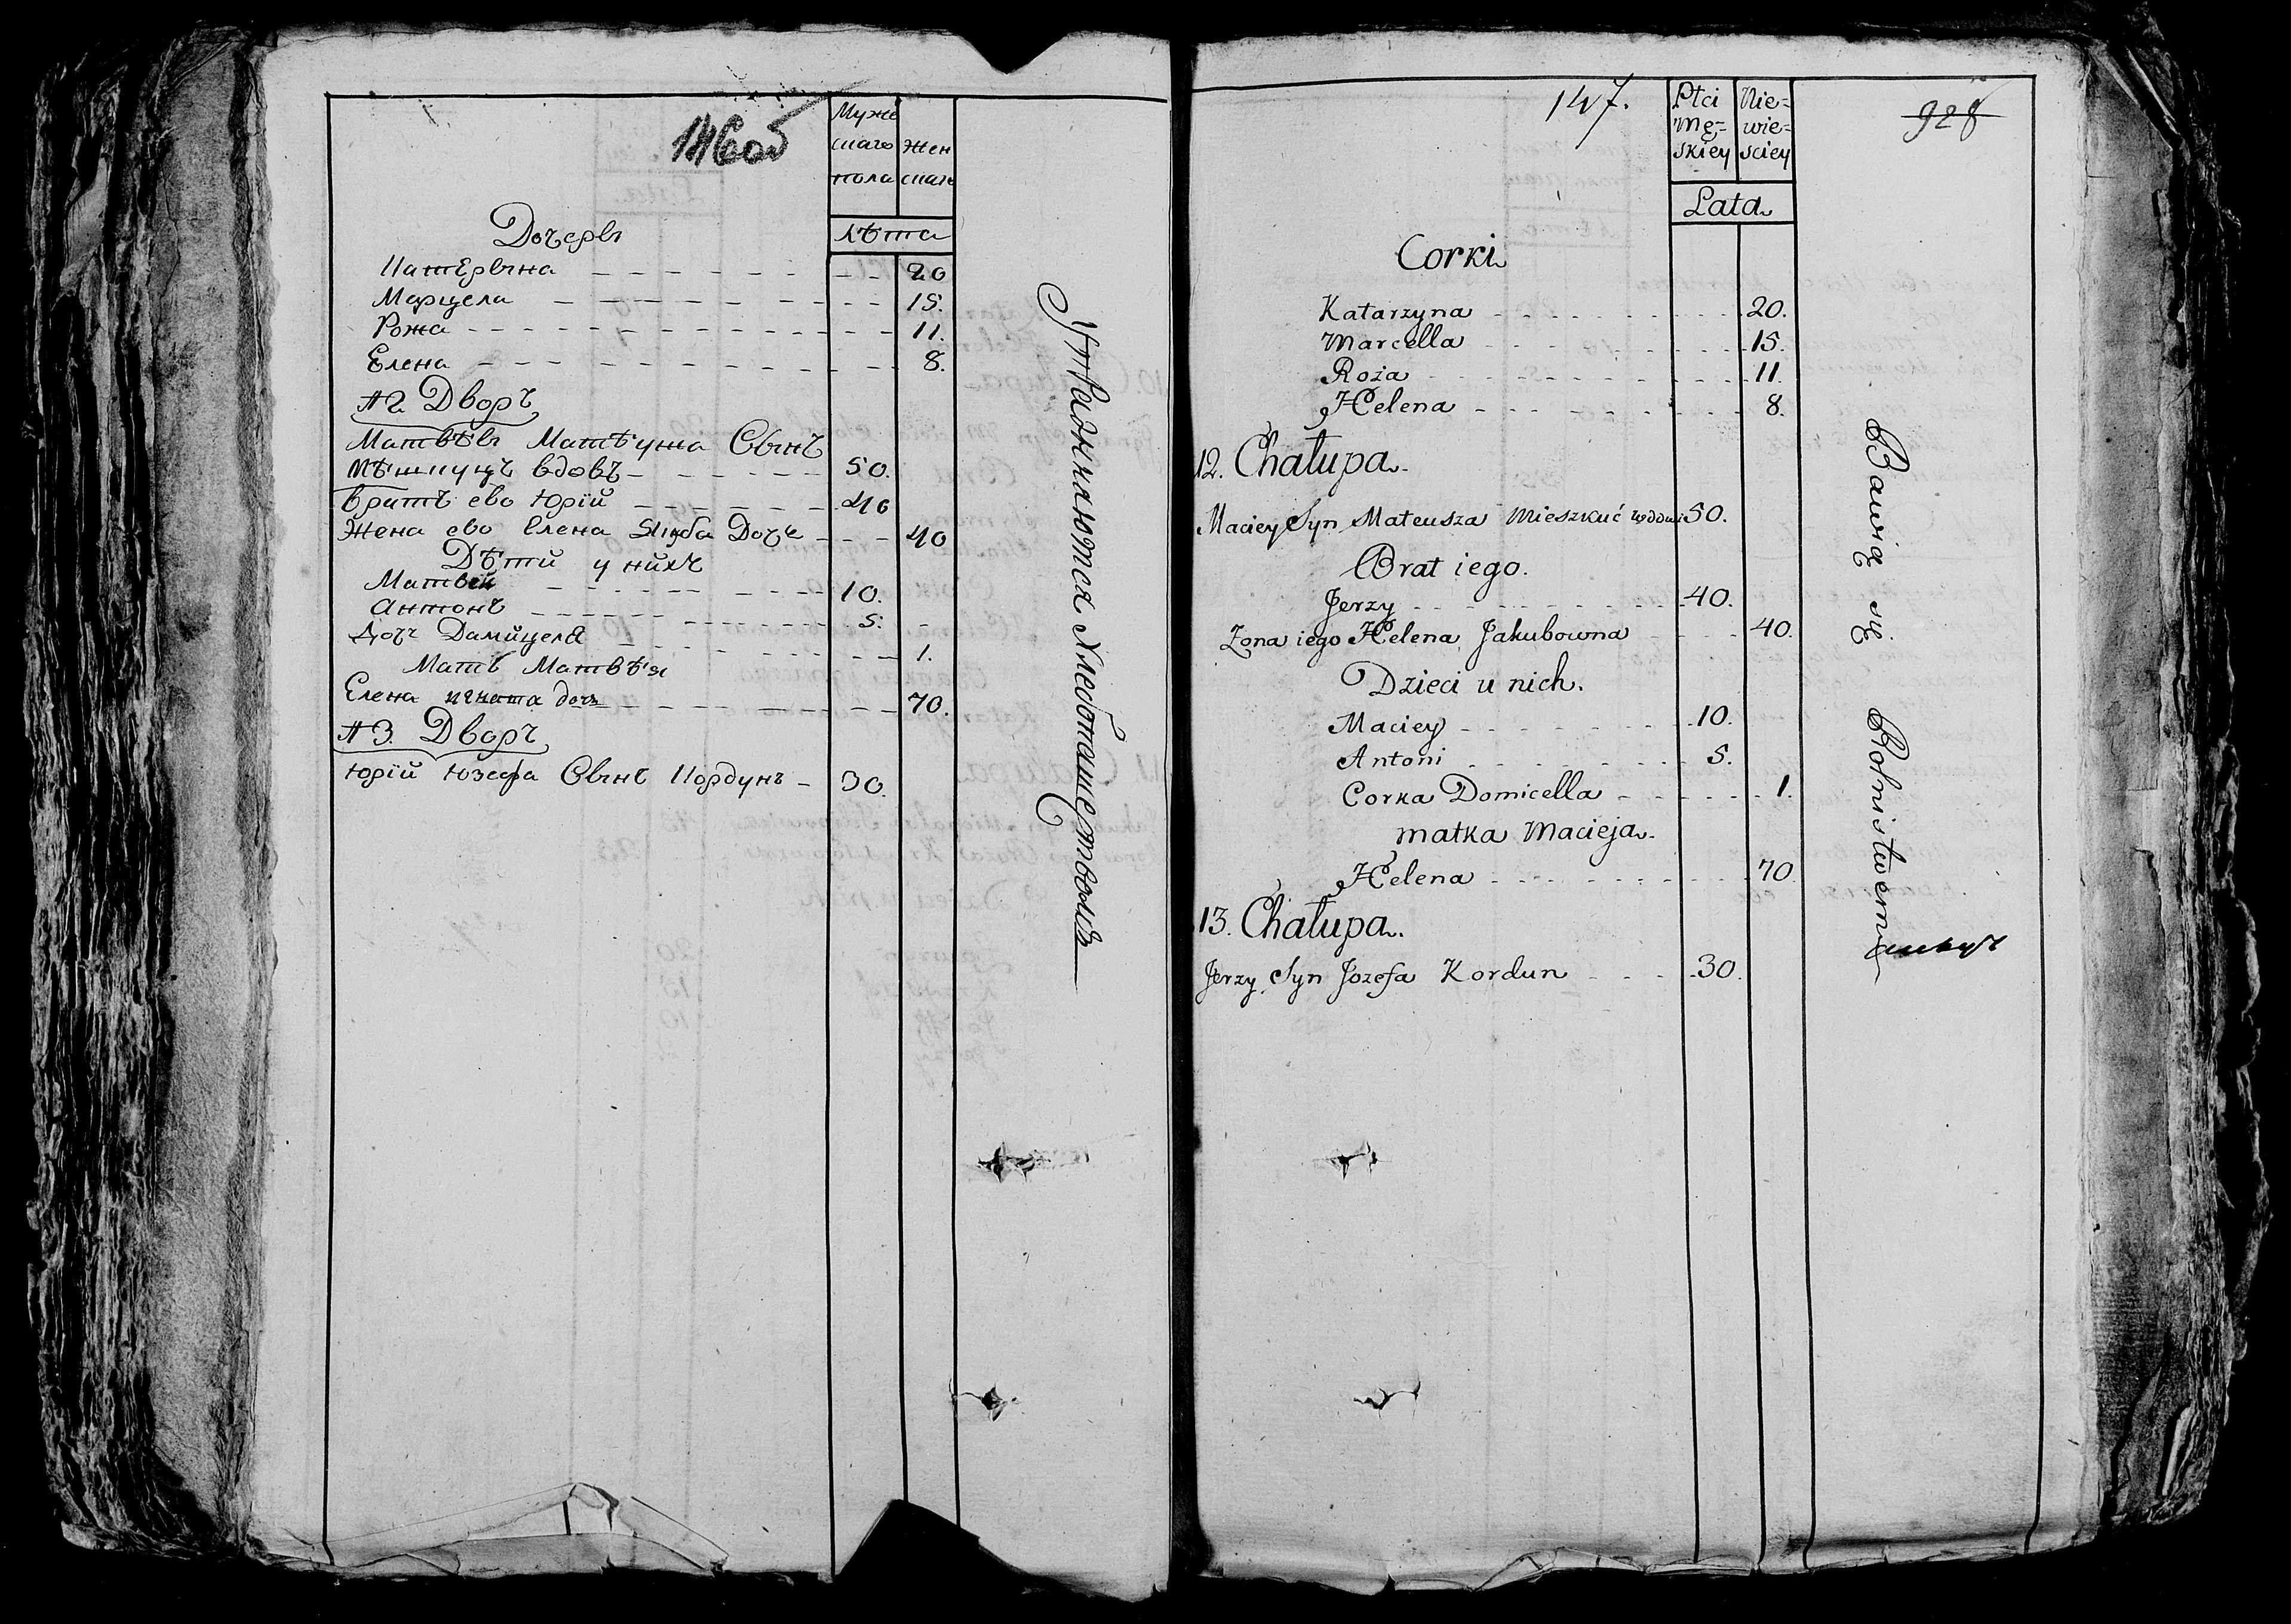 146об
Муже
скаго Жен
пола скаго
Лѣта
Дочеры
Катерына 20
Марцела 15.
Рожа 11.
Елена 8.
12. Дворъ
Матвѣй Матѣуша Сынъ
Мѣшкуць вдовъ 50.
Братъ ево Юрій 40
Жена ево Елена Якуба Дочь 40
Дѣти у нихъ
Матвѣй 10.
Антонъ 5.
Дочь Дамицеля 1.
Мать Матвѣя
Елена дочь 70.
13. Дворъ
Юрій Юзефа Сынъ Кордунъ 30.
Упражняются хлебопашествомъ
147.
Płci Nie=
Mę= wie=
skiey sciey
928
Lata
Corki
Katarzyna 20.
Marcella 15.
Roża 11.
Helena 8.
12. Chałupa.
Maciey Syn Mateusza Mieszkuć wdowi 50.
Brat iego.
Jerzy 40.
Zona iego Helena Jakubowna 40.
Dzieci u nich.
Maciey 10.
Antoni 5.
Corka Domicella 1.
matka Macieja.
Helena 70
13. Chałupa.
Jerzy Syn Jozefa Kordun 30.
Bawią się Rolnistwem